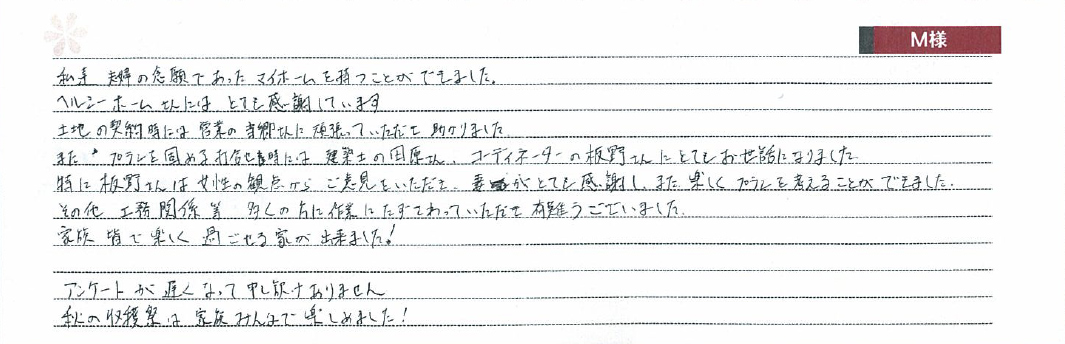 M様
私達 夫婦の念願であった マイホームを持つことができました。
ヘルシーホームさんには とても感謝しています
土地の契約時には 営業の 郷さんに 頑張っていただき 助かりました
また プランを固める打合せ時には 建築士の田原さん、コーディネーターの板野さんにとてもお世話になりました
特に 板野さんは 女性の観点から ご意見をいただき、妻がとても感謝し、また 楽しく プランを考えることができました。
その他 工務関係等 多くの方に作業にたずさわっていただき 有難うございました。
家族 皆で 楽しく 過ごせる 家が 出来ました！
アンケートが遅くなって申し訳ありません
秋の収穫祭は 家族みんなで 楽しめました！